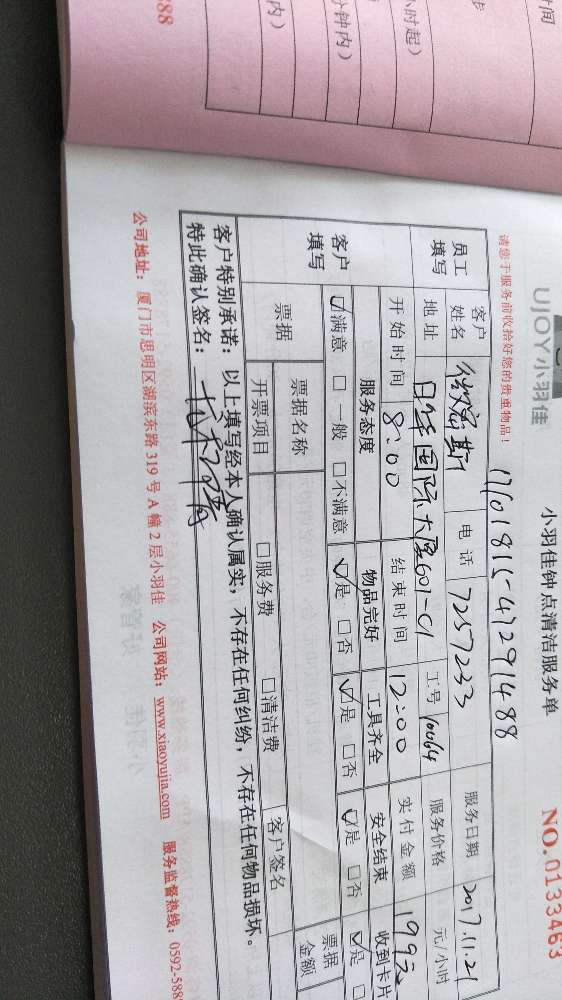 时间
步
小时起）
分钟内）
内）
888
UJOY小羽佳
小羽佳钟点清洁服务单
NO.0133463
请您于服务前收拾好您的贵重物品！
1701811547291488
员工填写
客户姓名
斯
电话
7257233
服务日期
2017.11.21
地址
日华国际大厦601-C1
工号
服务价格
元/小时
开始时间
8:00
结束时间
12:00
实付金额
199元
客户填写
服务态度
物品完好
工具齐全
安全结束
收到卡片
☑满意 □一般 □不满意
☑是 □否
☑是 □否
☑是 □否
☑是
票据
票据名称
客户签名
票据金额
开票项目
□服务费
□清洁费
客户特别承诺：以上填写经本人确认属实，不存在任何纠纷，不存在任何物品损坏。
特此确认签名：
公司地址：厦门市思明区湖滨东路319号A幢2层小羽佳 公司网站：www.xiaoyujia.com 服务监督热线：0592-5888